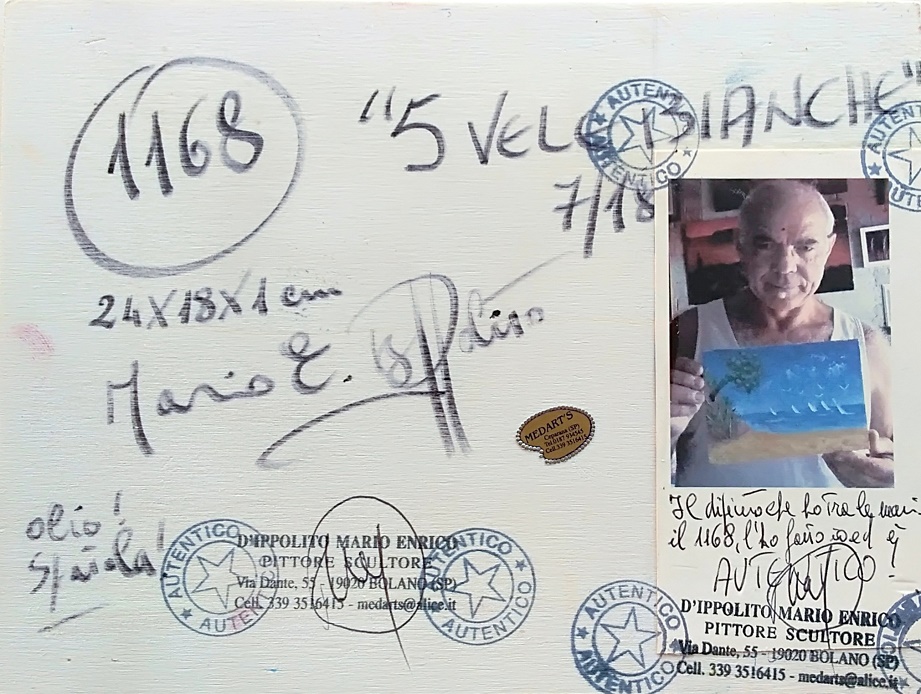 1168
"5 VELE BIANCHE"
7/18
24X18X1 cm
Mario E. D'Ippolito
MEDART'S
Ceparana (SP)
Tel.0187 934545
Cell.339 3516415
olio!
spatola!
AUTENTICO
AUTENTICO
D'IPPOLITO MARIO ENRICO
PITTORE SCULTORE
Via Dante, 55 - 19020 BOLANO (SP)
Cell. 339 3516415 - medarts@alice.it
AUTENTICO
AUTENTICO
AUTENTICO
Il dipinto che ho tra le mani
il 1168, l'ho fatto io ed è
AUTENTICO!
D'IPPOLITO MARIO ENRICO
PITTORE SCULTORE
Via Dante, 55 - 19020 BOLANO (SP)
Cell. 339 3516415 - medarts@alice.it
AUTENTICO
AUTENTICO